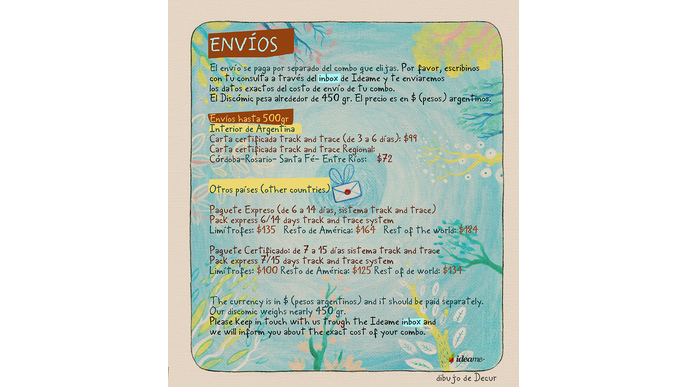 ENVÍOS
El envío se paga por separado del combo que elijas. Por favor, escribinos
con tu consulta a través del inbox de Ideame y te enviaremos
los datos exactos del costo de envío de tu combo.
El Discómic pesa alrededor de 450 gr. El precio es en $ (pesos) argentinos.
Envíos hasta 500gr
Interior de Argentina
Carta certificada track and trace (de 3 a 6 días): $99
Carta certificada track and trace Regional:
Córdoba-Rosario- Santa Fé- Entre Ríos: $72
Otros países (other countries)
Paquete Expreso (de 6 a 14 días, sistema track and trace)
Pack express 6/14 days track and trace system
Limítrofes: $135 Resto de América: $164 Rest of the world: $184
Paquete Certificado: de 7 a 15 días sistema track and trace
Pack express 7/15 days track and trace system
Limítrofes: $100 Resto de América: $125 Rest of de world: $134
The currency is in $ (pesos argentinos) and it should be paid separately.
Our discomic weighs nearly 450 gr.
Please keep in touch with us trough the Ideame inbox and
we will inform you about the exact cost of your combo.
ideame
dibujo de Decur